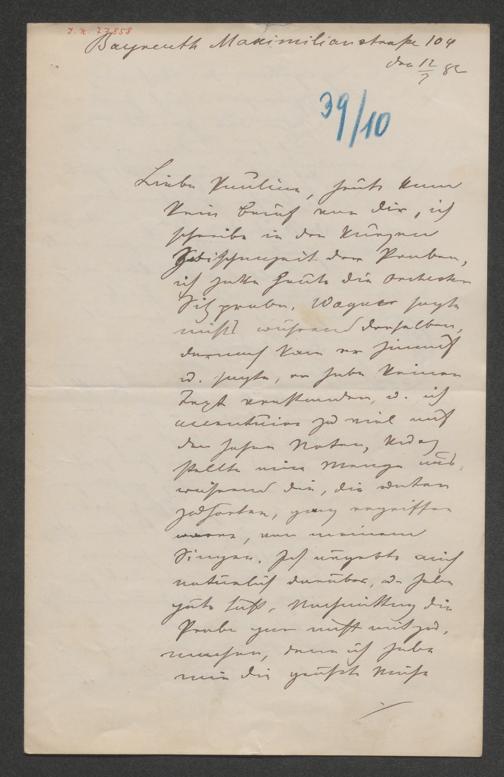 J. N. 77.858
Bayreuth Maximilianstraße 104
den 12/7 82
39/10
Liebe Pauline, heute kam
kein Brief von dir, ich
schreibe in der kurzen
Zwischenzeit der Proben,
ich hatte heute die Orchester
Sitzprobe. Wagner sagte
nichts während derselben,
darnach kam er hinauf
u. sagte, er habe keinen
Text verstanden, u. ich
accentuire zu viel auf
den hohen Noten, kurz
stellte eine Menge aus,
während die, die unten
zuhörten, ganz ergriffen
waren, von meinem
Singen. Ich ärgerte mich
natürlich darüber, u. habe
gute Lust, Nachmittag die
Probe gar nicht mitzu-
machen, denn ich habe
mir die größte Mühe